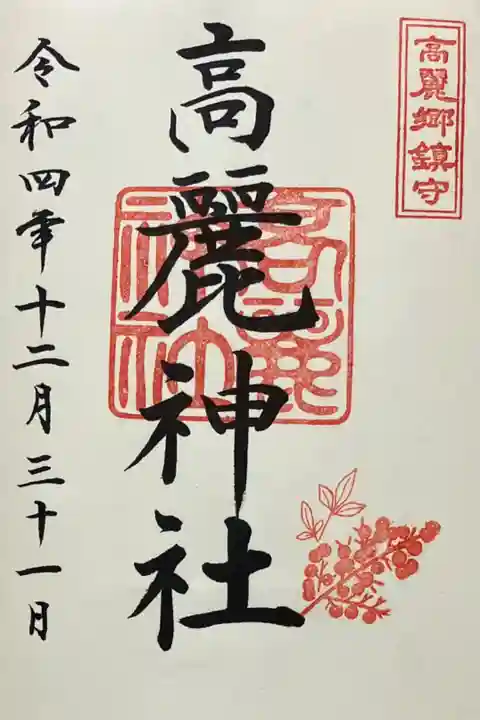 高麗郷鎮守
高麗神社
高麗神社
令和四年十二月三十一日